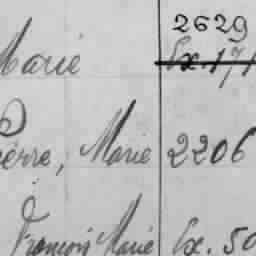 2629
Marie Ex. 171
Pierre, Marie 2206
François Marie Ex. 50